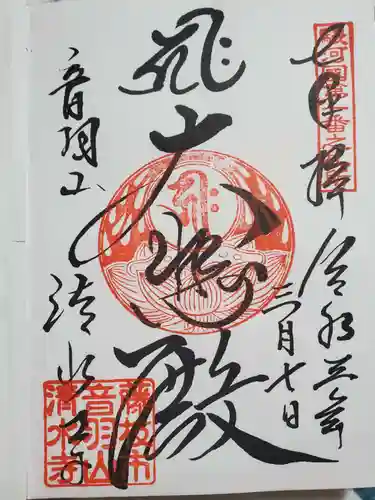 駿河国第一番
奉拝
令和三年
三月七日
大悲殿
音羽山
清水寺
藤枝市
音羽山
清水寺